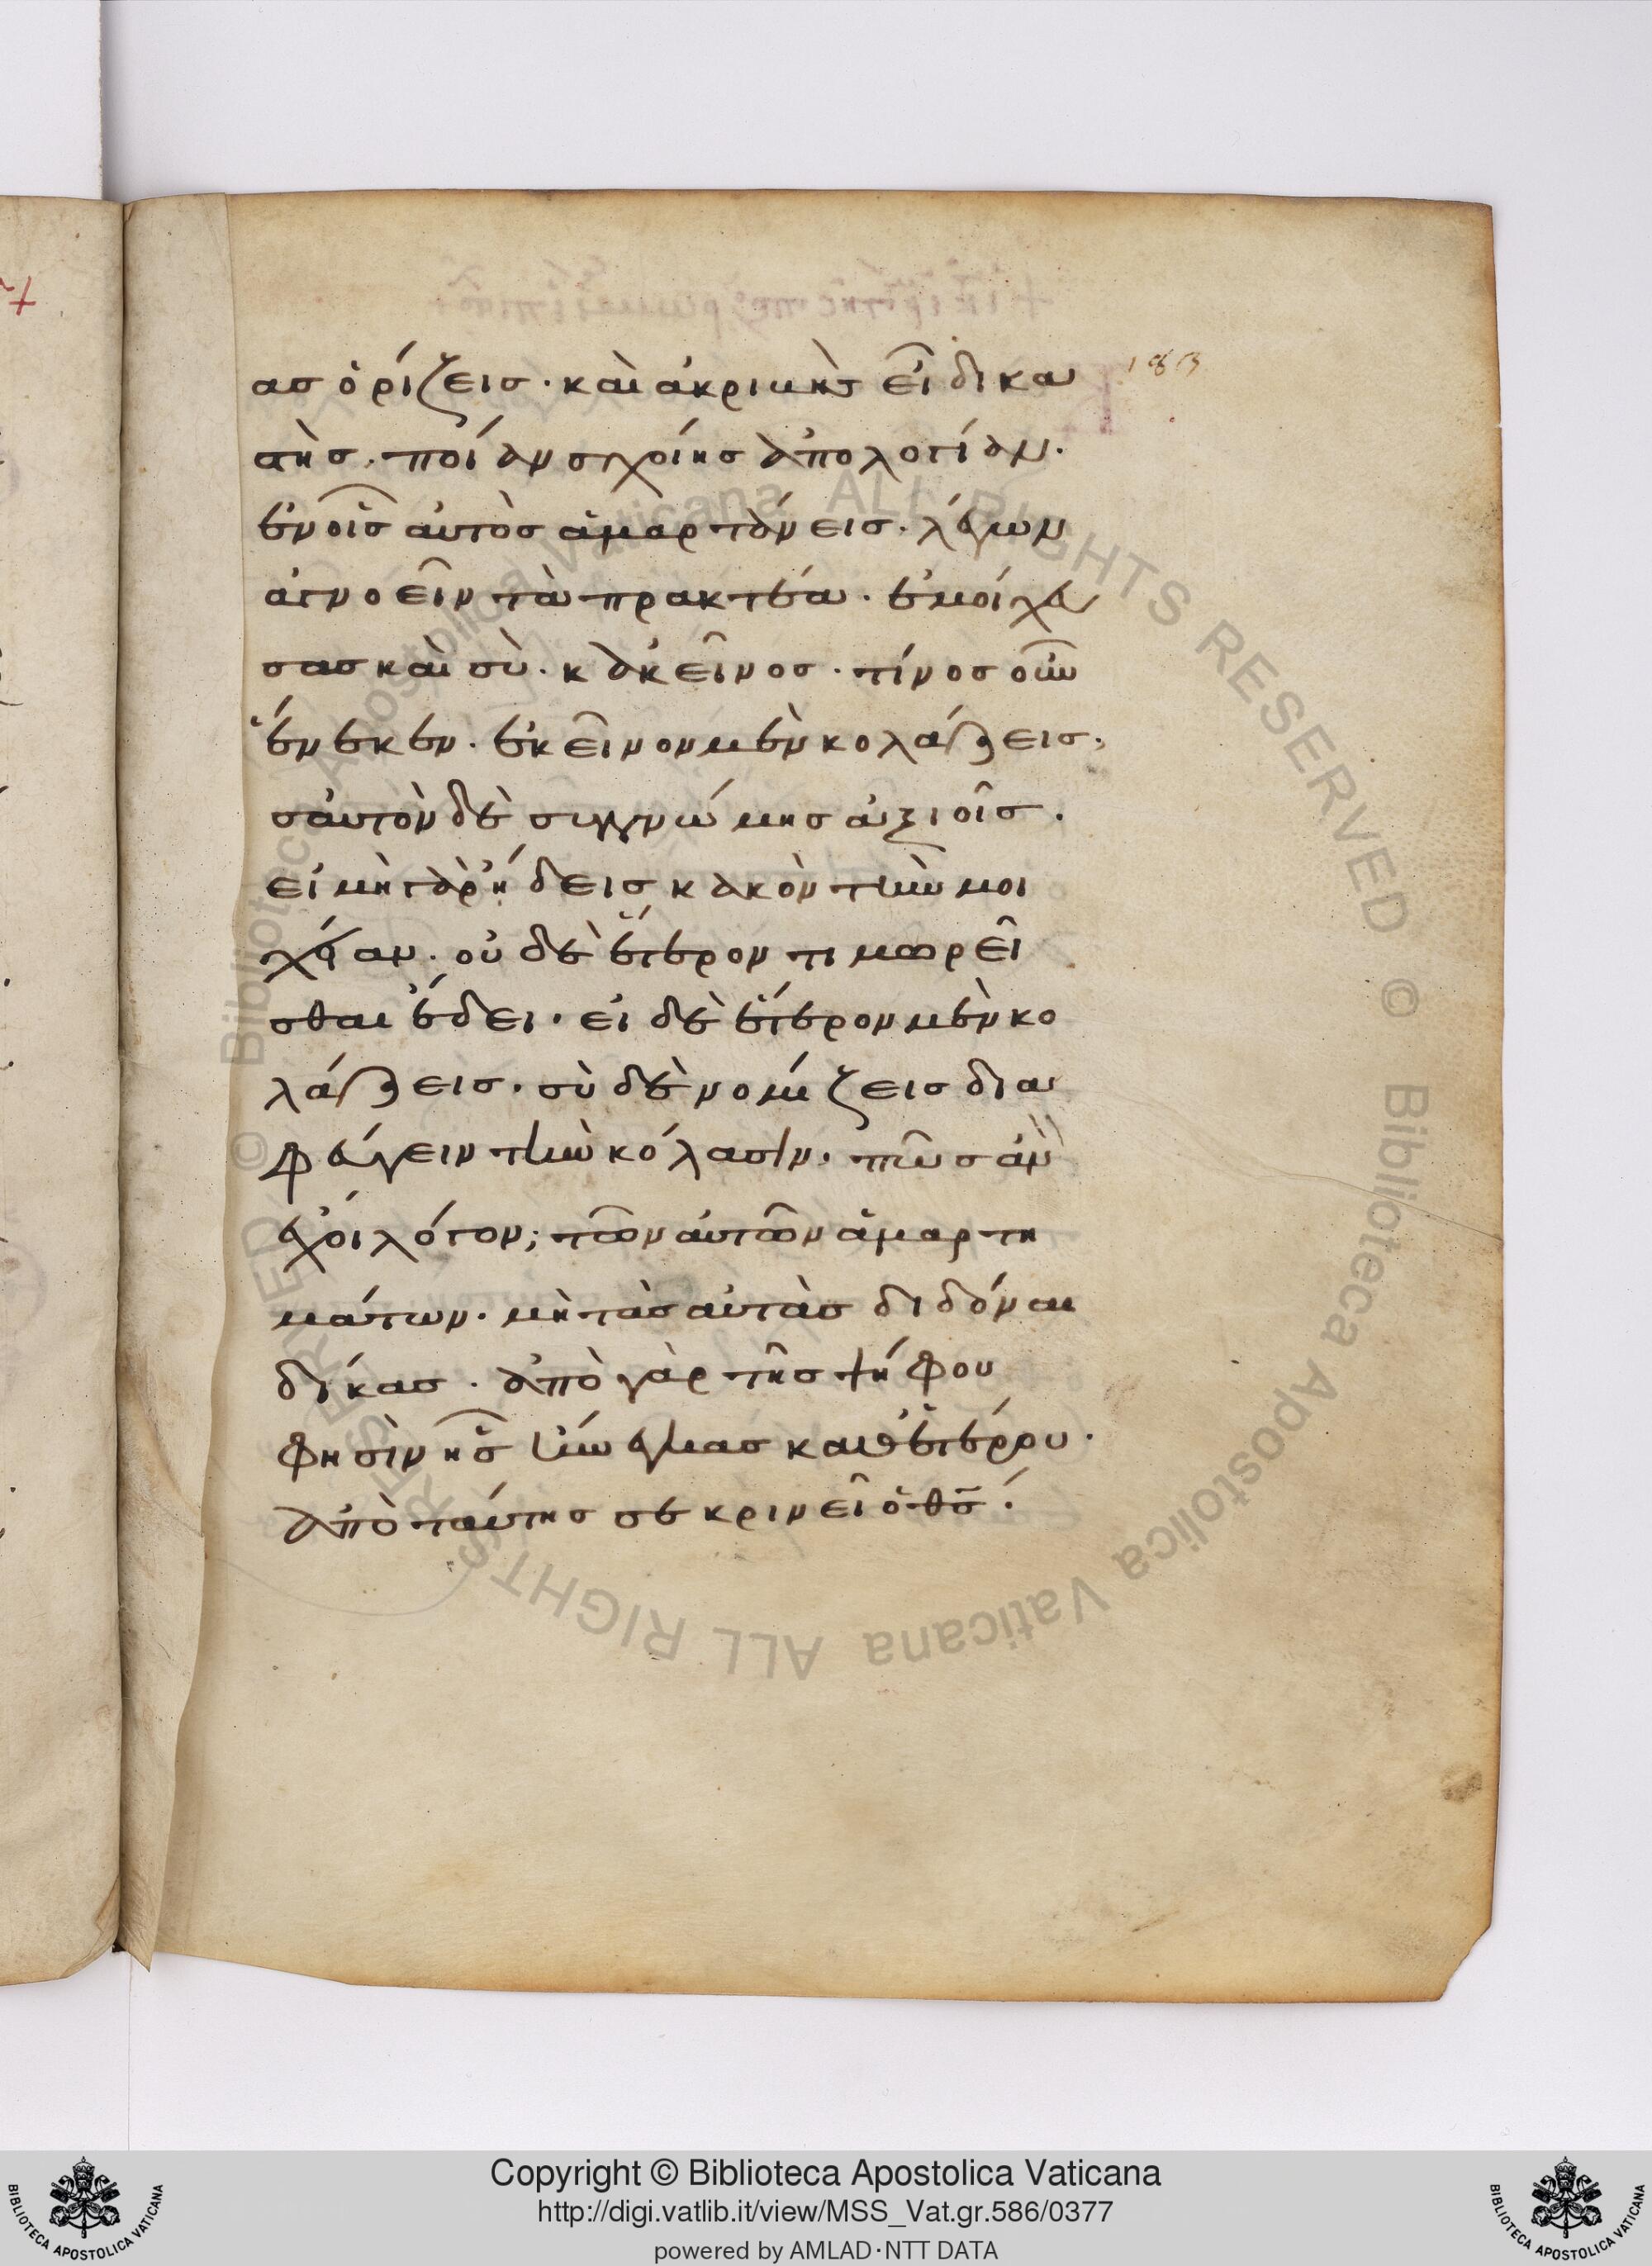 183
ασ ὁρίζεισ · καὶ ἀκριβὴσ εἶ δικα
στὴσ · ποίαν σχοίησ ἀπολογίαν ·
ἐν οἷσ αὐτὸσ ἁμαρτάνεισ · λέγων
ἀγνοεῖν τὰ πρακτέα · ἐμοίχευ
σασ καὶ σὺ · κἀκεῖνοσ · τίνοσ οὖν
ἕνεκεν · ἐκεῖνον μὲν κολάζεισ ·
σαυτὸν δὲ συγγνώμησ ἀξιοῖσ ·
εἰ μὴ γὰρ ἤδεισ κακὸν τὴν μοι
χείαν · οὐδὲ ἕτερον τιμωρεῖ
σθαι ἔδει · εἰ δὲ ἕτερον μὲν κο
λάζεισ · σὺ δὲ νομίζεισ δια
φεύγειν τὴν κόλασιν · πῶσ ἂν
ἔχοι λόγον; τῶν αὐτῶν ἁμαρτη
μάτων · μὴ τὰσ αὐτὰσ διδόναι
δίκασ · ἀπὸ γὰρ τῆσ ψήφου
φησὶν ἧσ ἤνεγκασ καθ ἑτέρου ·
ἀπὸ ταύτησ σε κρινεῖ ὁ θσ ·
Copyright © Biblioteca Apostolica Vaticana
http://digi.vatlib.it/view/MSS_Vat.gr.586/0377
powered by AMLAD·NTT DATA
BIBLIOTECA APOSTOLICA VATICANA
BIBLIOTECA APOSTOLICA VATICANA
© Biblioteca Apostolica Vaticana ALL RIGHTS RESERVED © Biblioteca Apostolica Vaticana ALL RIGHTS RESERVED